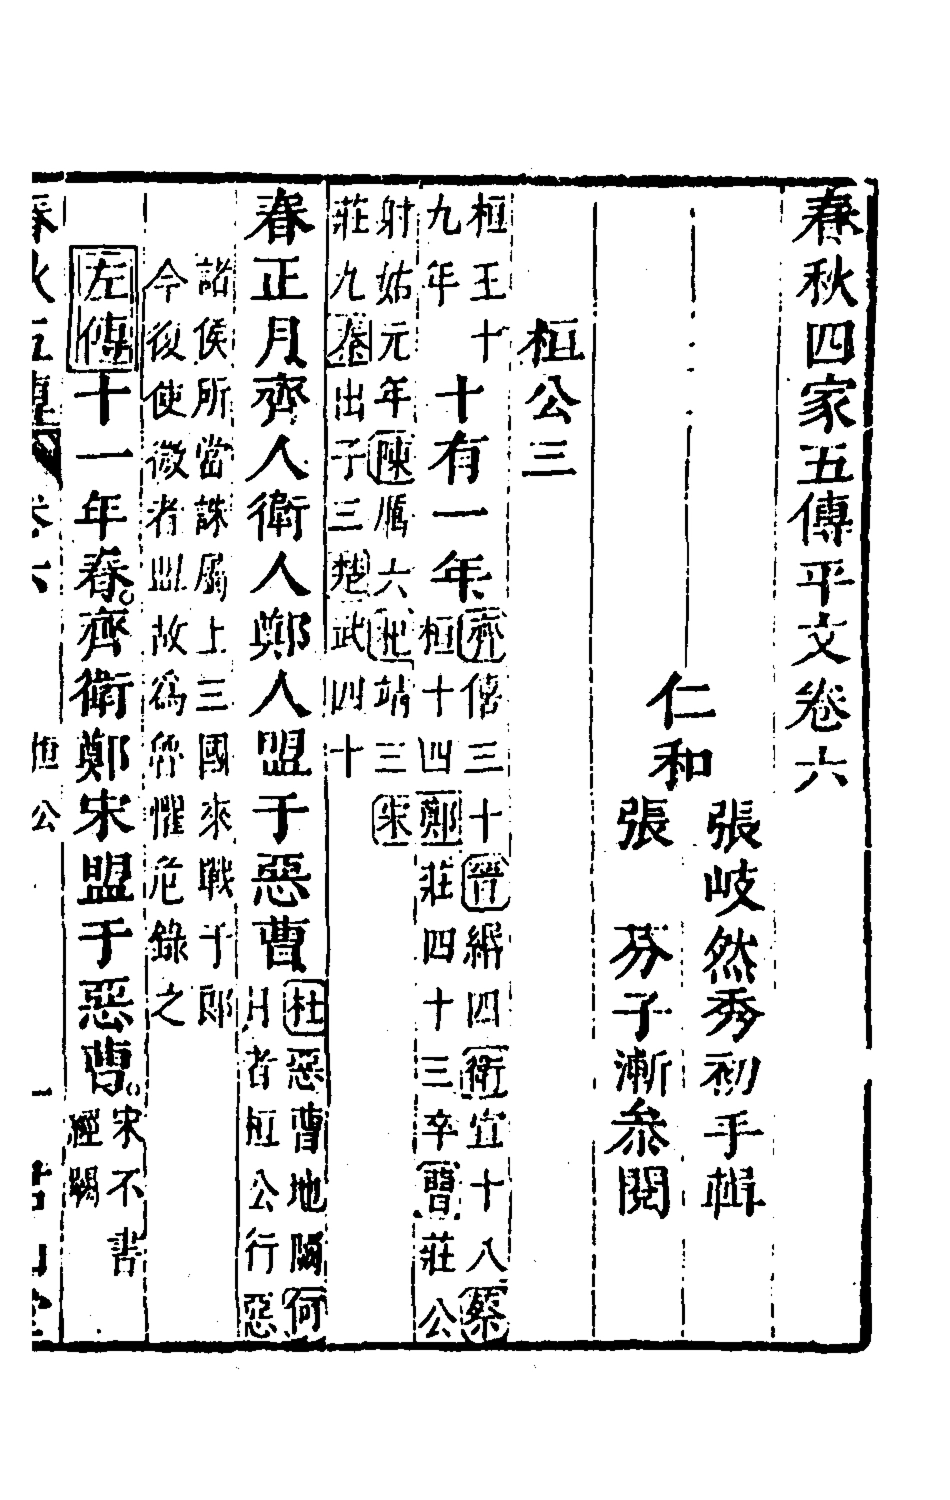 春秋四家五傳平文卷六
仁和
張岐然秀初手輯
張芬子漸叅閱
桓公三
桓王十
九年
十有一年
齊僖三十晉緡四衛宣十八蔡
桓十四鄭莊四十三卒曹莊公
射姑元年陳厲六杞靖三宋
莊九秦出子三楚武四十
春正月齊人衛人鄭人盟于惡曹
杜惡曹地闕何
月者桓公行惡
諸侯所當誅屬上三國來戰于郎
今復使微者盟故爲魯懼危錄之
左傳十一年春齊衛鄭宋盟于惡曹
宋不書
經闕
卷六
桓公